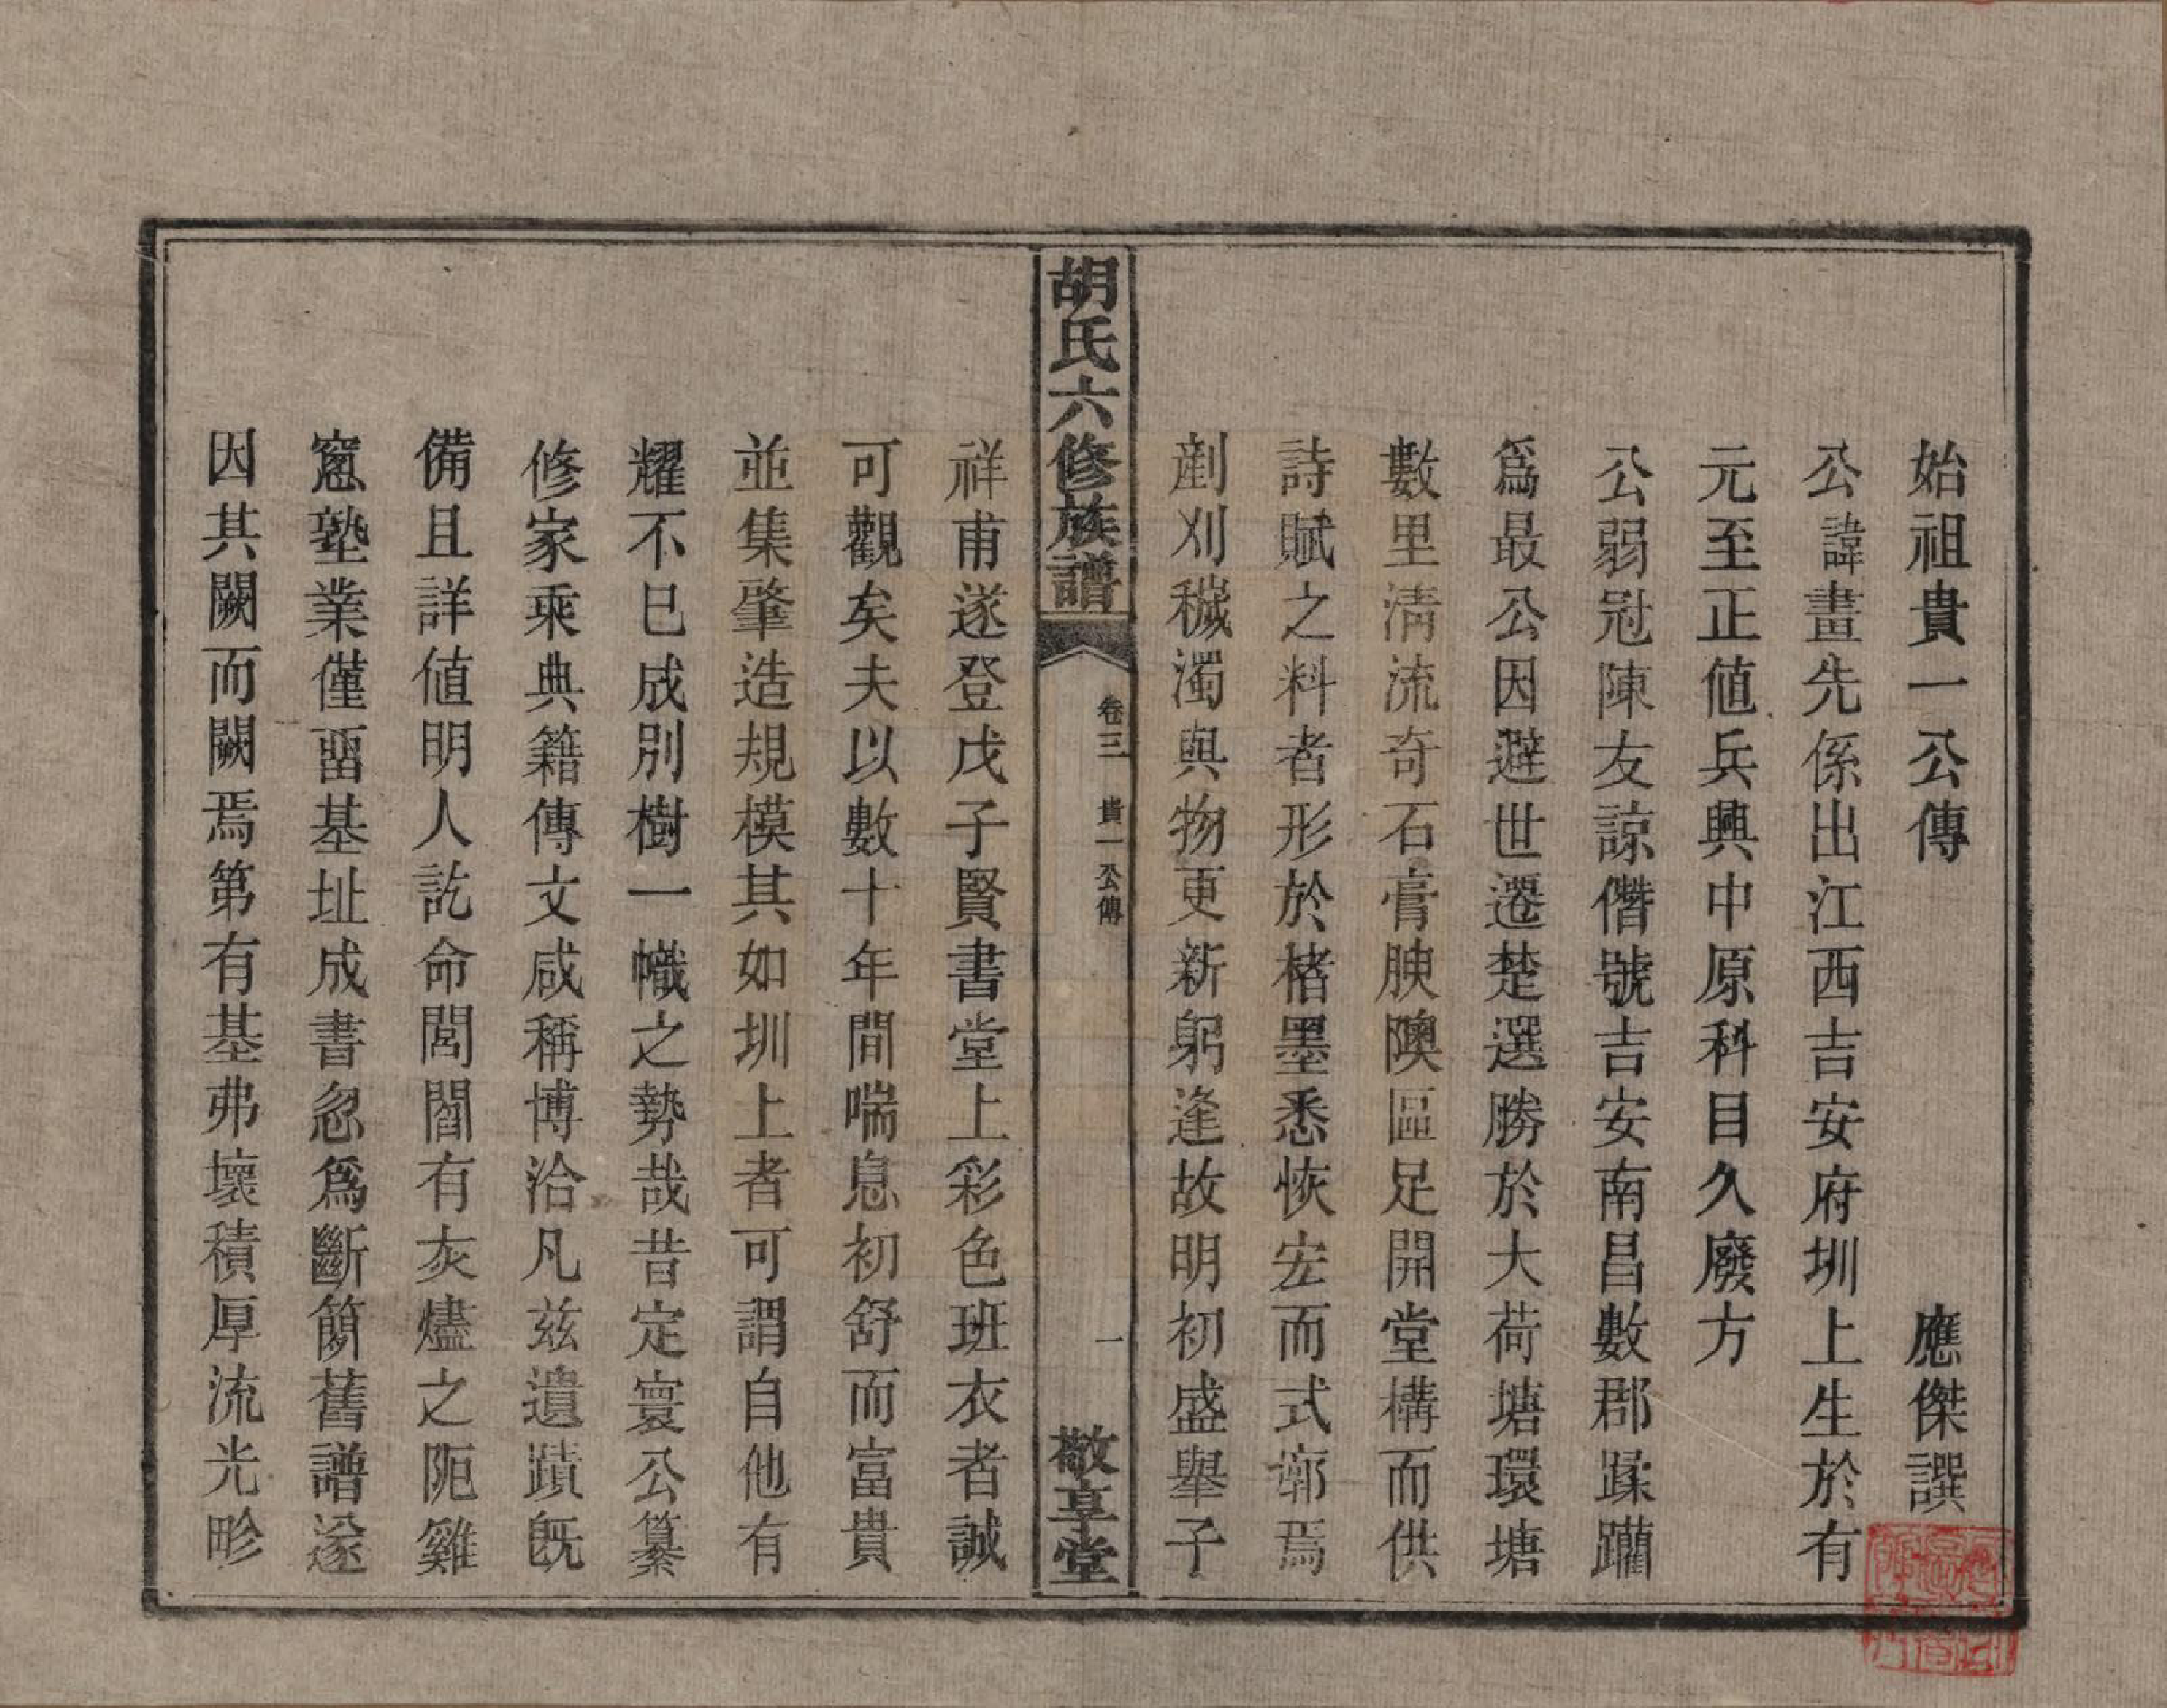 始祖貴一公傳 應傑譔
公諱畫先係出江西吉安府圳上生於有
元至正值兵興中原科目久廢方
公弱冠陳友諒僭號吉安南昌數郡蹂躪
爲最公因避世遷楚選勝於大荷塘環塘
數里清流奇石膏腴隩區足開堂構而供
詩賦之料者形於楮墨悉恢宏而式廓焉
剷刈穢濁與物更新躬逢故明初盛舉子
胡氏六修族譜 卷三 貴一公傳 一 敬享堂
祥甫遂登戊子賢書堂上彩色班衣者誠
可觀矣夫以數十年間喘息初舒而富貴
並集肇造規模其如圳上者可謂自他有
耀不已成別樹一幟之勢哉昔定寰公纂
修家乘典籍傳文咸稱博洽凡兹遺蹟既
備且詳值明人訖命閭閻有灰燼之阨雞
窻塾業僅畱基址成書忽爲斷簡舊譜遂
因其闕而闕焉第有基弗壞積厚流光畛